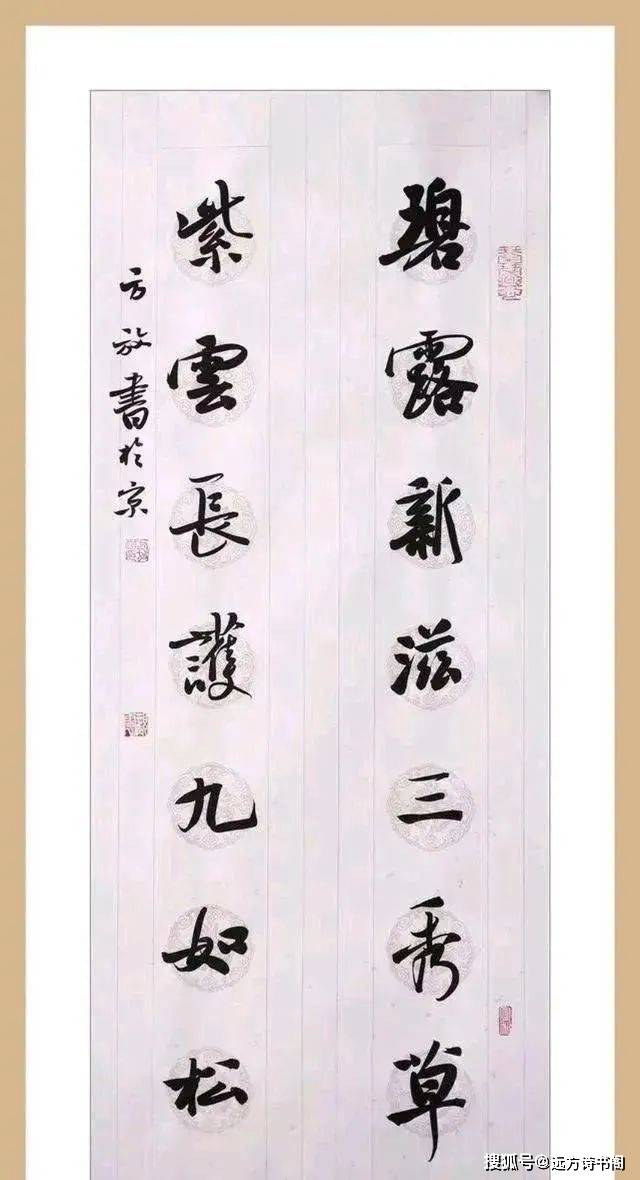 碧露新滋三秀草
紫雲長護九如松
方放書於京
搜狐号@远方诗书阁